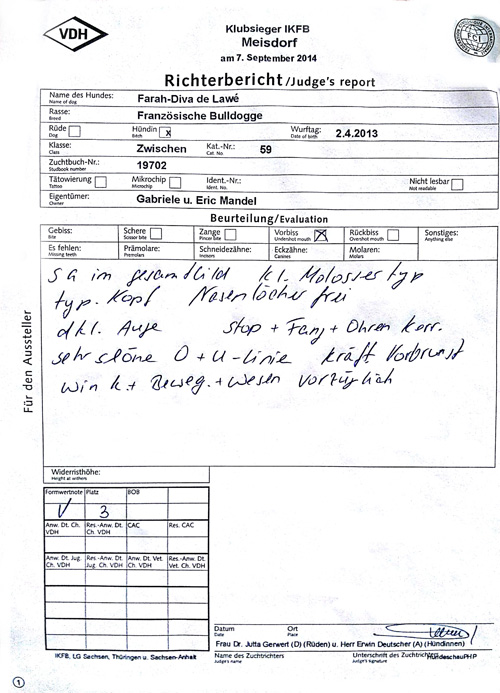 VDH
Klubsieger IKFB
Meisdorf
am 7. September 2014
FCI
Richterbericht /Judge's report
Name des Hundes: Farah-Diva de Lawé
Name of dog
Rasse: Französische Bulldogge
Breed
Rüde Hündin x Wurftag: 2.4.2013
Dog Bitch Date of birth
Klasse: Zwischen Kat.-Nr.: 59
Class Cat. No.
Zuchtbuch-Nr.: 19702
Studbook number
Tätowierung Mikrochip Ident.-Nr.: Nicht lesbar
Tattoo Microchip Ident. No. Not readable
Eigentümer: Gabriele u. Eric Mandel
Owner
Beurteilung/Evaluation
Gebiss: Schere Zange Vorbiss X Rückbiss Sonstiges:
Bite Scissor bite Pincer bite Undershot mouth Overshot mouth Anything else
Es fehlen: Prämolare: Schneidezähne: Eckzähne: Molaren:
Missing teeth Premolars Incisors Canines Molars
sg im gesamtbild kl. Molossertyp
typ. Kopf Nasenlöcher frei
dkl. Auge Stop + Fang + Ohren korr.
sehr schöne O + U-Linie kräft. Vorbrust
Wink. + Beweg. + Wesen vorzüglich
Für den Aussteller
Widerristhöhe:
Height at withers
Formwertnote Platz BOB
V 3
Anw. Dt. Ch. VDH Res.-Anw. Dt. Ch. VDH CAC Res. CAC
Anw. Dt. Jug. Ch. VDH Res.-Anw. Dt. Jug. Ch. VDH Anw. Dt. Vet. Ch. VDH Res.-Anw. Dt. Vet. Ch. VDH
Datum Ort
Date Place
Frau Dr. Jutta Gerwert (D) (Rüden) u. Herr Erwin Deutscher (A) (Hündinnen)
Name des Zuchtrichters Unterschrift des Zuchtrichters
Judge's name Judge's signature
HundeschauPHP
IKFB, LG Sachsen, Thüringen u. Sachsen-Anhalt
1